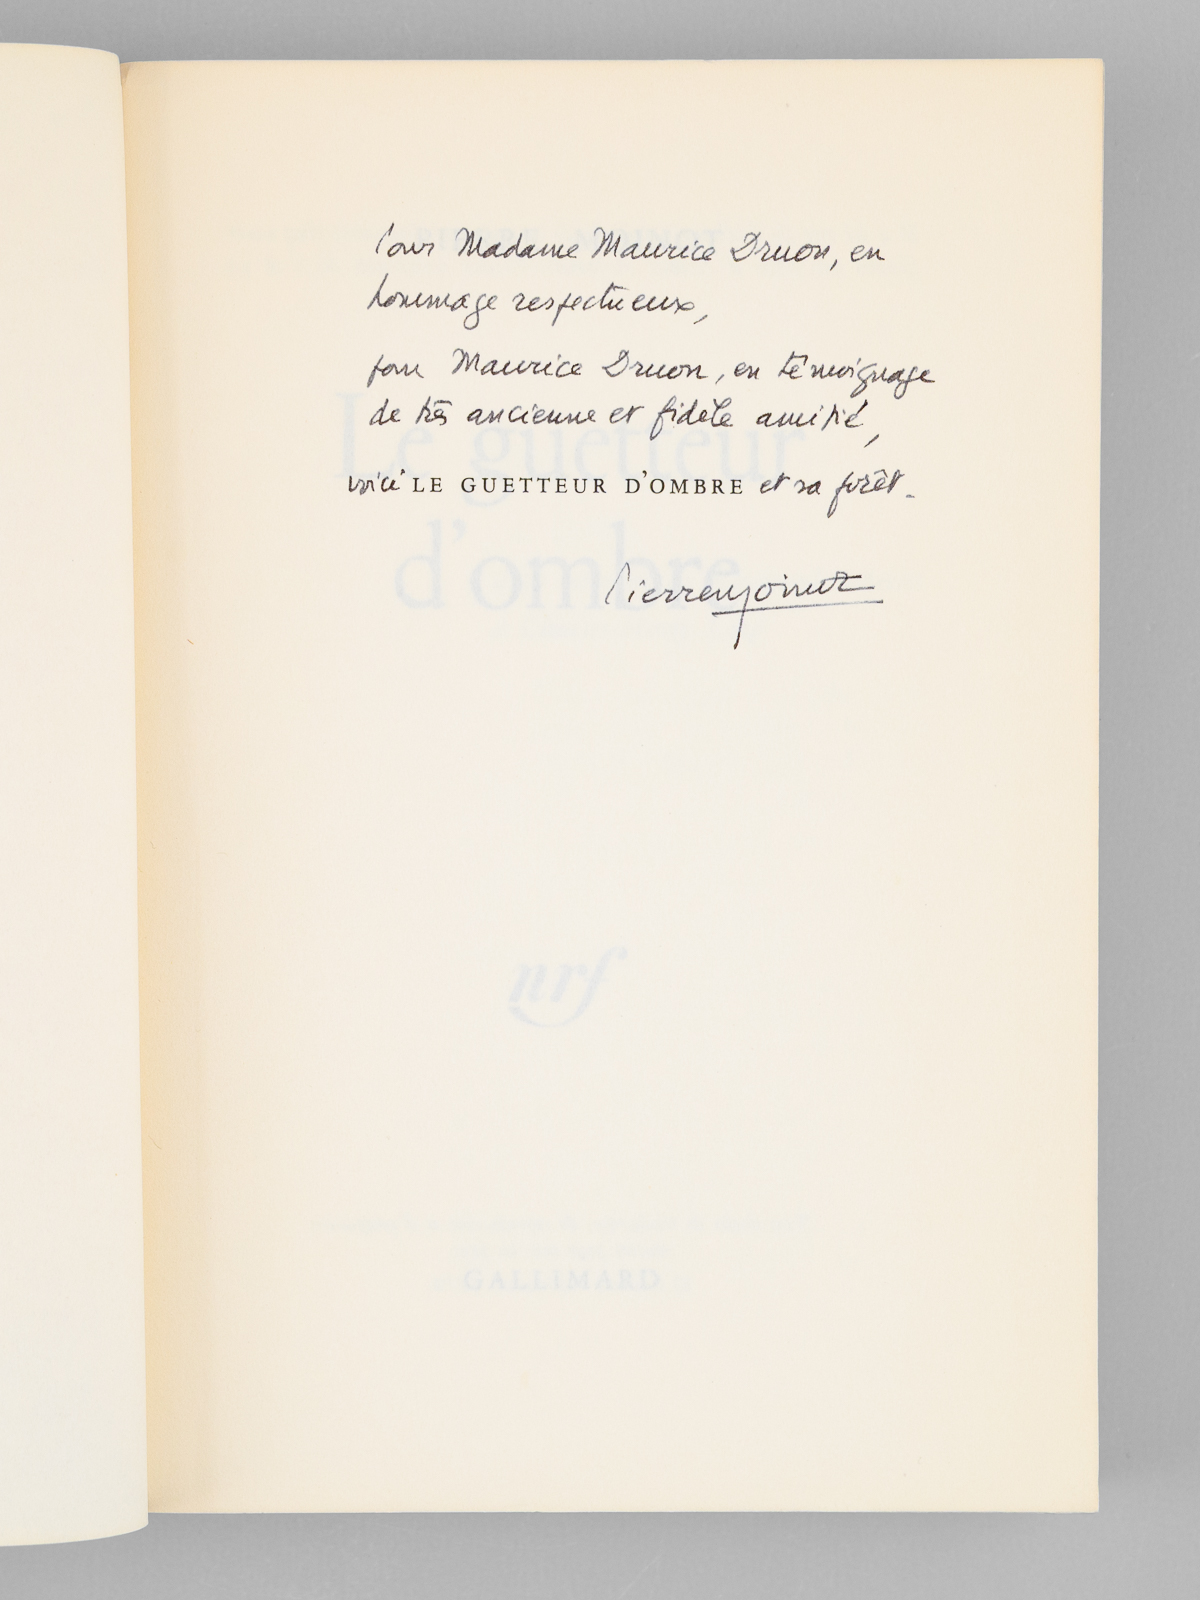 Pour Madame Maurice Druon, en
hommage respectueux,
pour Maurice Druon, en témoignage
de très ancienne et fidèle amitié,
voici LE GUETTEUR D'OMBRE et sa forêt.
Pierre Moinot
Le guetteur
d'ombre
nrf
GALLIMARD